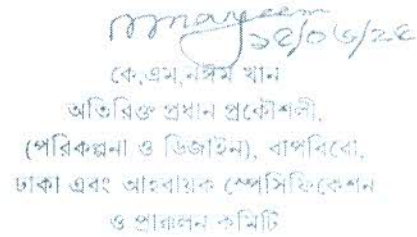 ১৫/০৬/২৫
কে,এম,নঈম খান
অতিরিক্ত প্রধান প্রকৌশলী,
(পরিকল্পনা ও ডিজাইন), বাপবিবো,
ঢাকা এবং আহবায়ক স্পেসিফিকেশন
ও প্রাক্কলন কমিটি